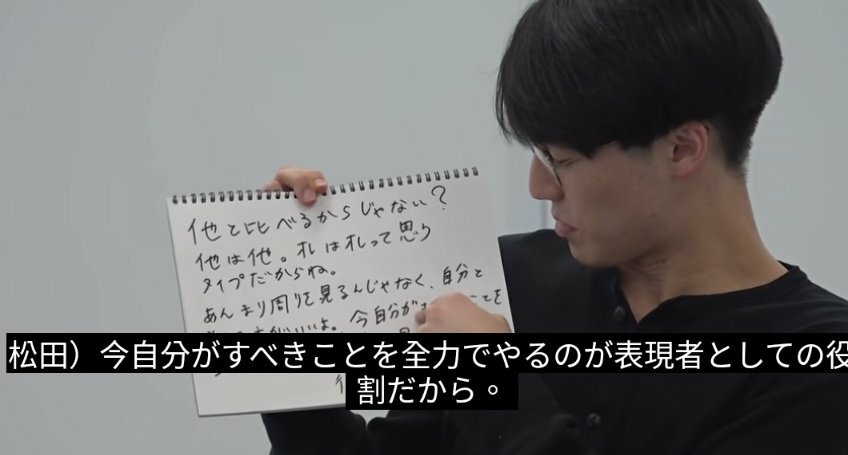 他と比べるからじゃない？
他は他。オレはオレって思う
タイプだからね。
あんまり周りを見るんじゃなく、自分と
がいいよ。今自分が
ことを
松田）今自分がすべきことを全力でやるのが表現者としての役
割だから。